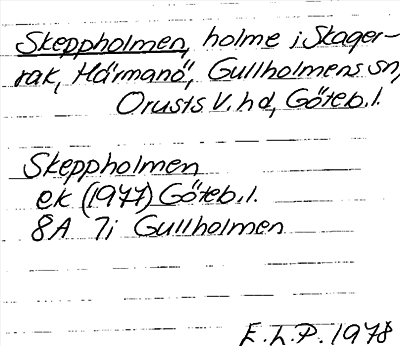 Skeppholmen, holme i Skager-
rak, Härmanö, Gullholmens sn,
Orusts V. hd, Göteb.l.
Skeppholmen
ek (1977) Göteb.l.
8A 7i Gullholmen
E.L.P. 1978